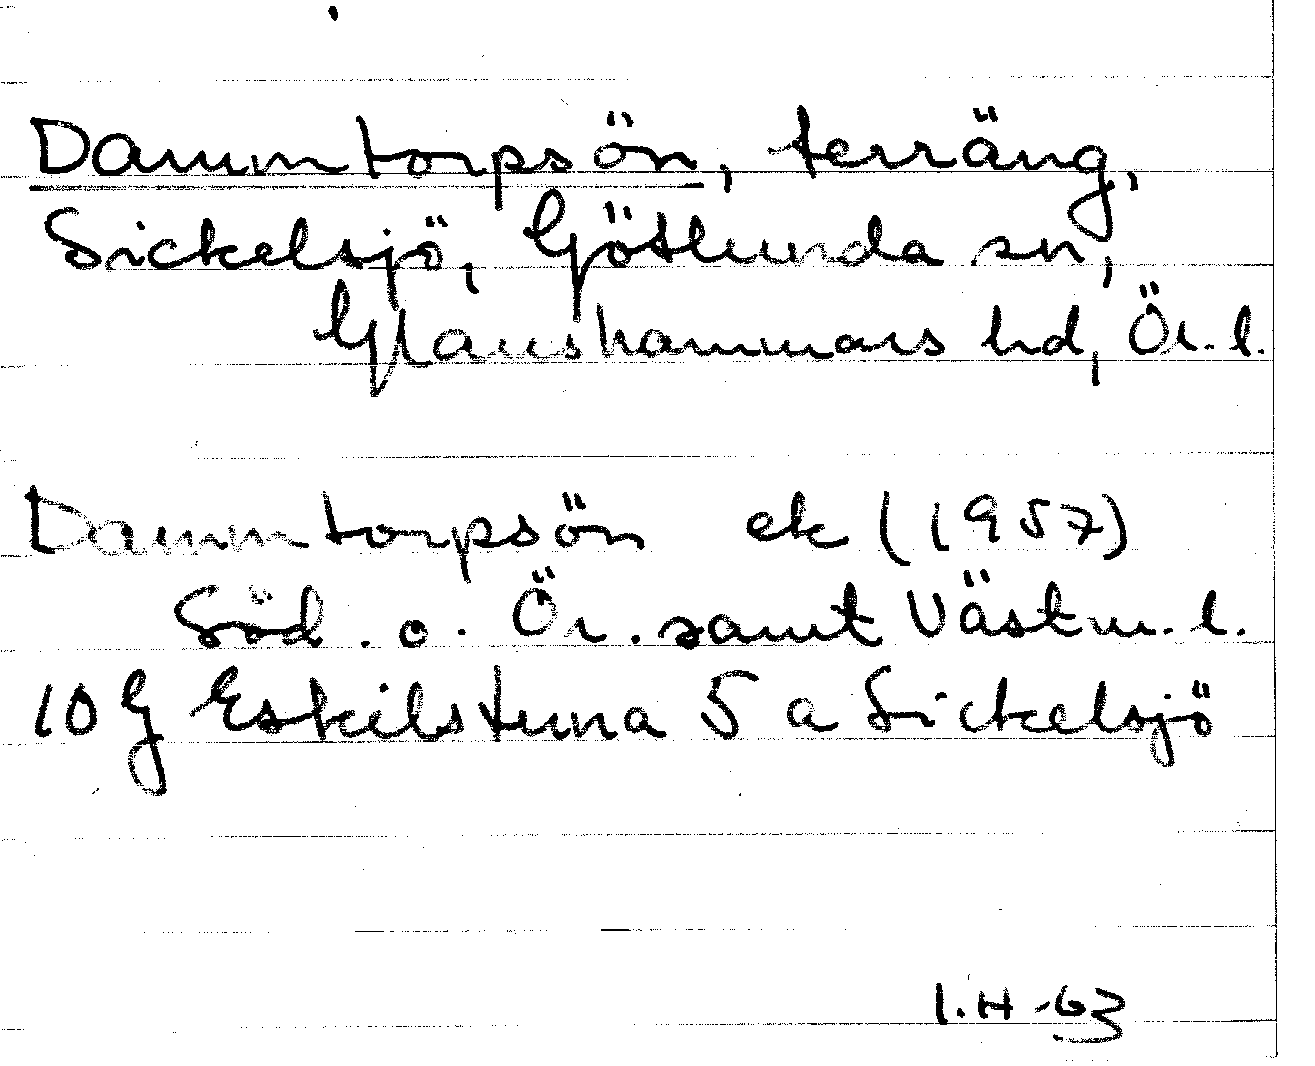 Dammtorpsön, terräng,
Sickelsjö, Götlunda sn,
Glanshammars hd, Ör. l.
Dammtorpsön ek (1957)
Söd. o. Ör. samt Västm. l.
10 G Eskilstuna 5 a Sickelsjö
I.H -63